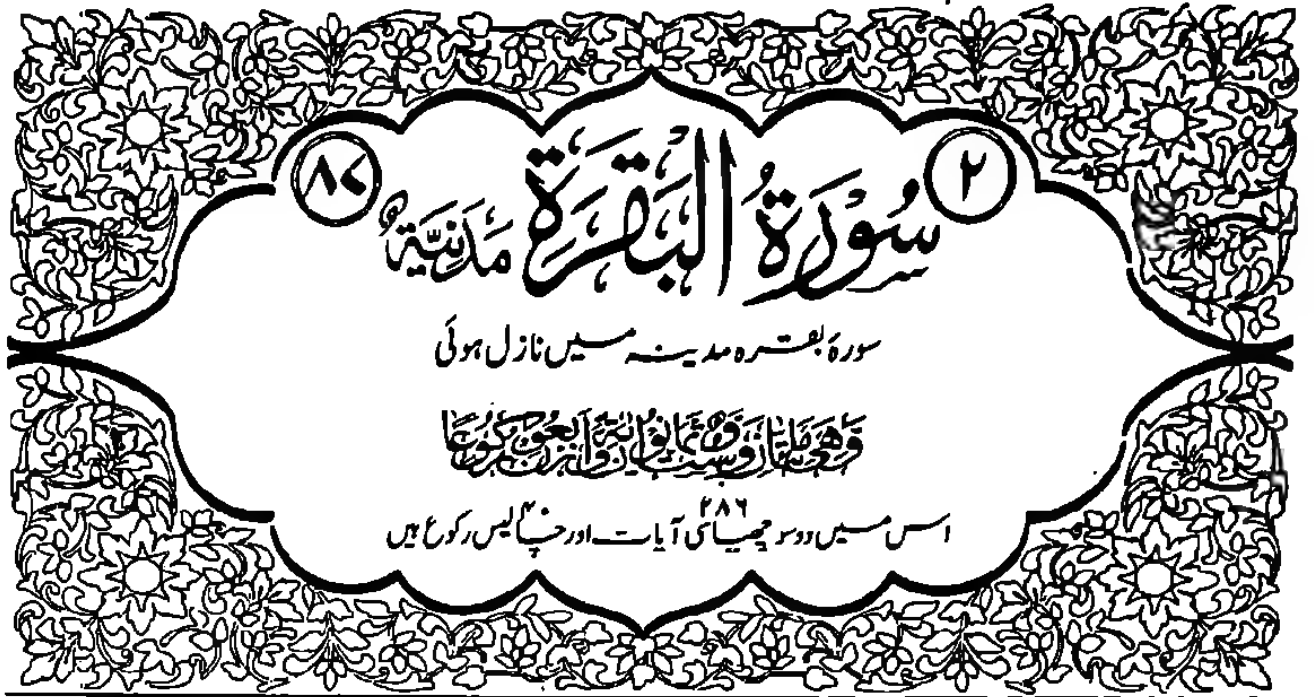 ٢
سُورَةُ الْبَقَرَةِ مَدَنِيَّةٌ
٨٧
سورۂ بقرہ مدینہ میں نازل ہوئی
وَهِيَ مِائَتَانِ وَسِتٌّ وَثَمَانُونَ آيَةً وَأَرْبَعُونَ رُكُوعًا
٢٨٦
اس میں دوسو چھیاسی آیات اور چالیس رکوع ہیں